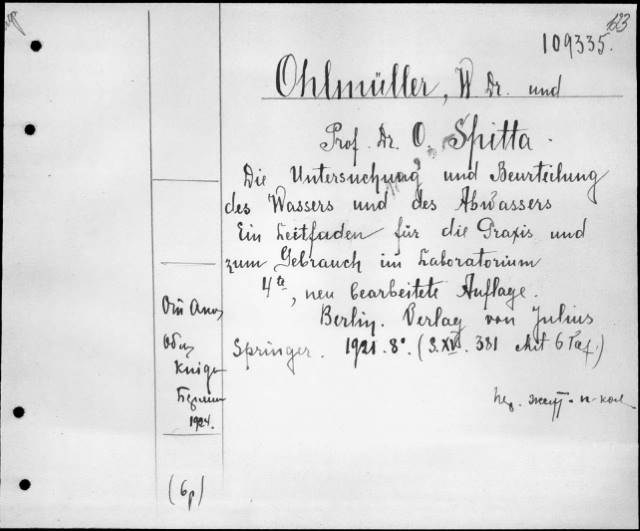 109335.
Ohlmüller, W. Dr. und
Prof. Dr. O. Spitta.
Die Untersuchung und Beurteilung
des Wassers und des Abwassers
Ein Leitfaden für die Praxis und
zum Gebrauch im Laboratorium
4te, neu bearbeitete Auflage.
Berlin. Verlag von Julius
Springer. 1921. 8°. (S. XVI. 381 Mit 6 Taf.)
1924.
(6р)